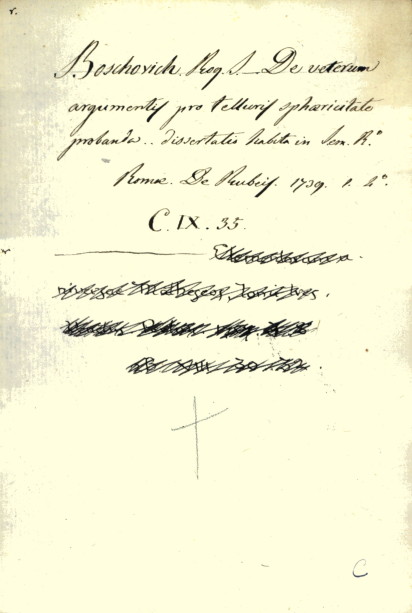 r.
Boschovich. Rog. S. — De veterum
argumentis pro telluris sphæricitate
probanda.. dissertatio habita in Sem. R.º
Romæ. De Rubeis. 1739. 1. 4º.
C. IX. 35.
C